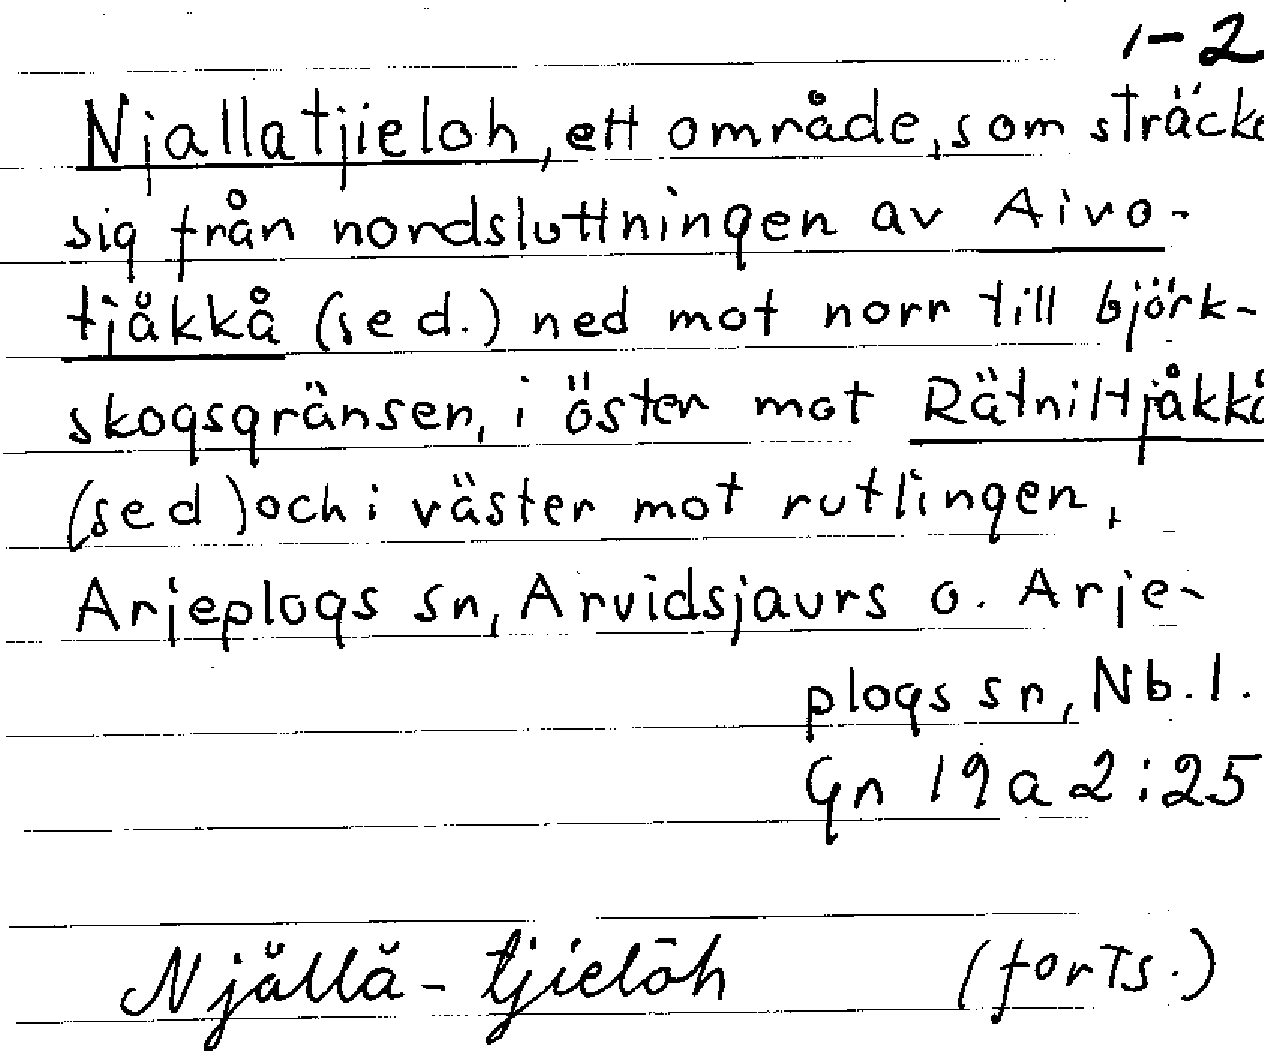 1-2
Njallatjieloh, ett område, som sträcke
sig från nordsluttningen av Aivo-
tjåkkå (sed.) ned mot norr till björk-
skogsgränsen, i öster mot Rätniltjåkkå
(sed) och i väster mot rutlingen,
Arjeplogs sn, Arvidsjaurs o. Arje-
plogs sn, Nb. l.
Gn 19 a 2:25
Njăllă-tjielōh (forts.)